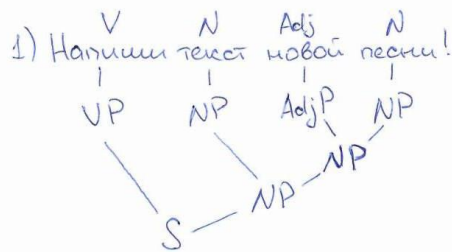 V N Adj N
1) Напиши текст новой песни!
VP NP AdjP NP
NP
NP
S